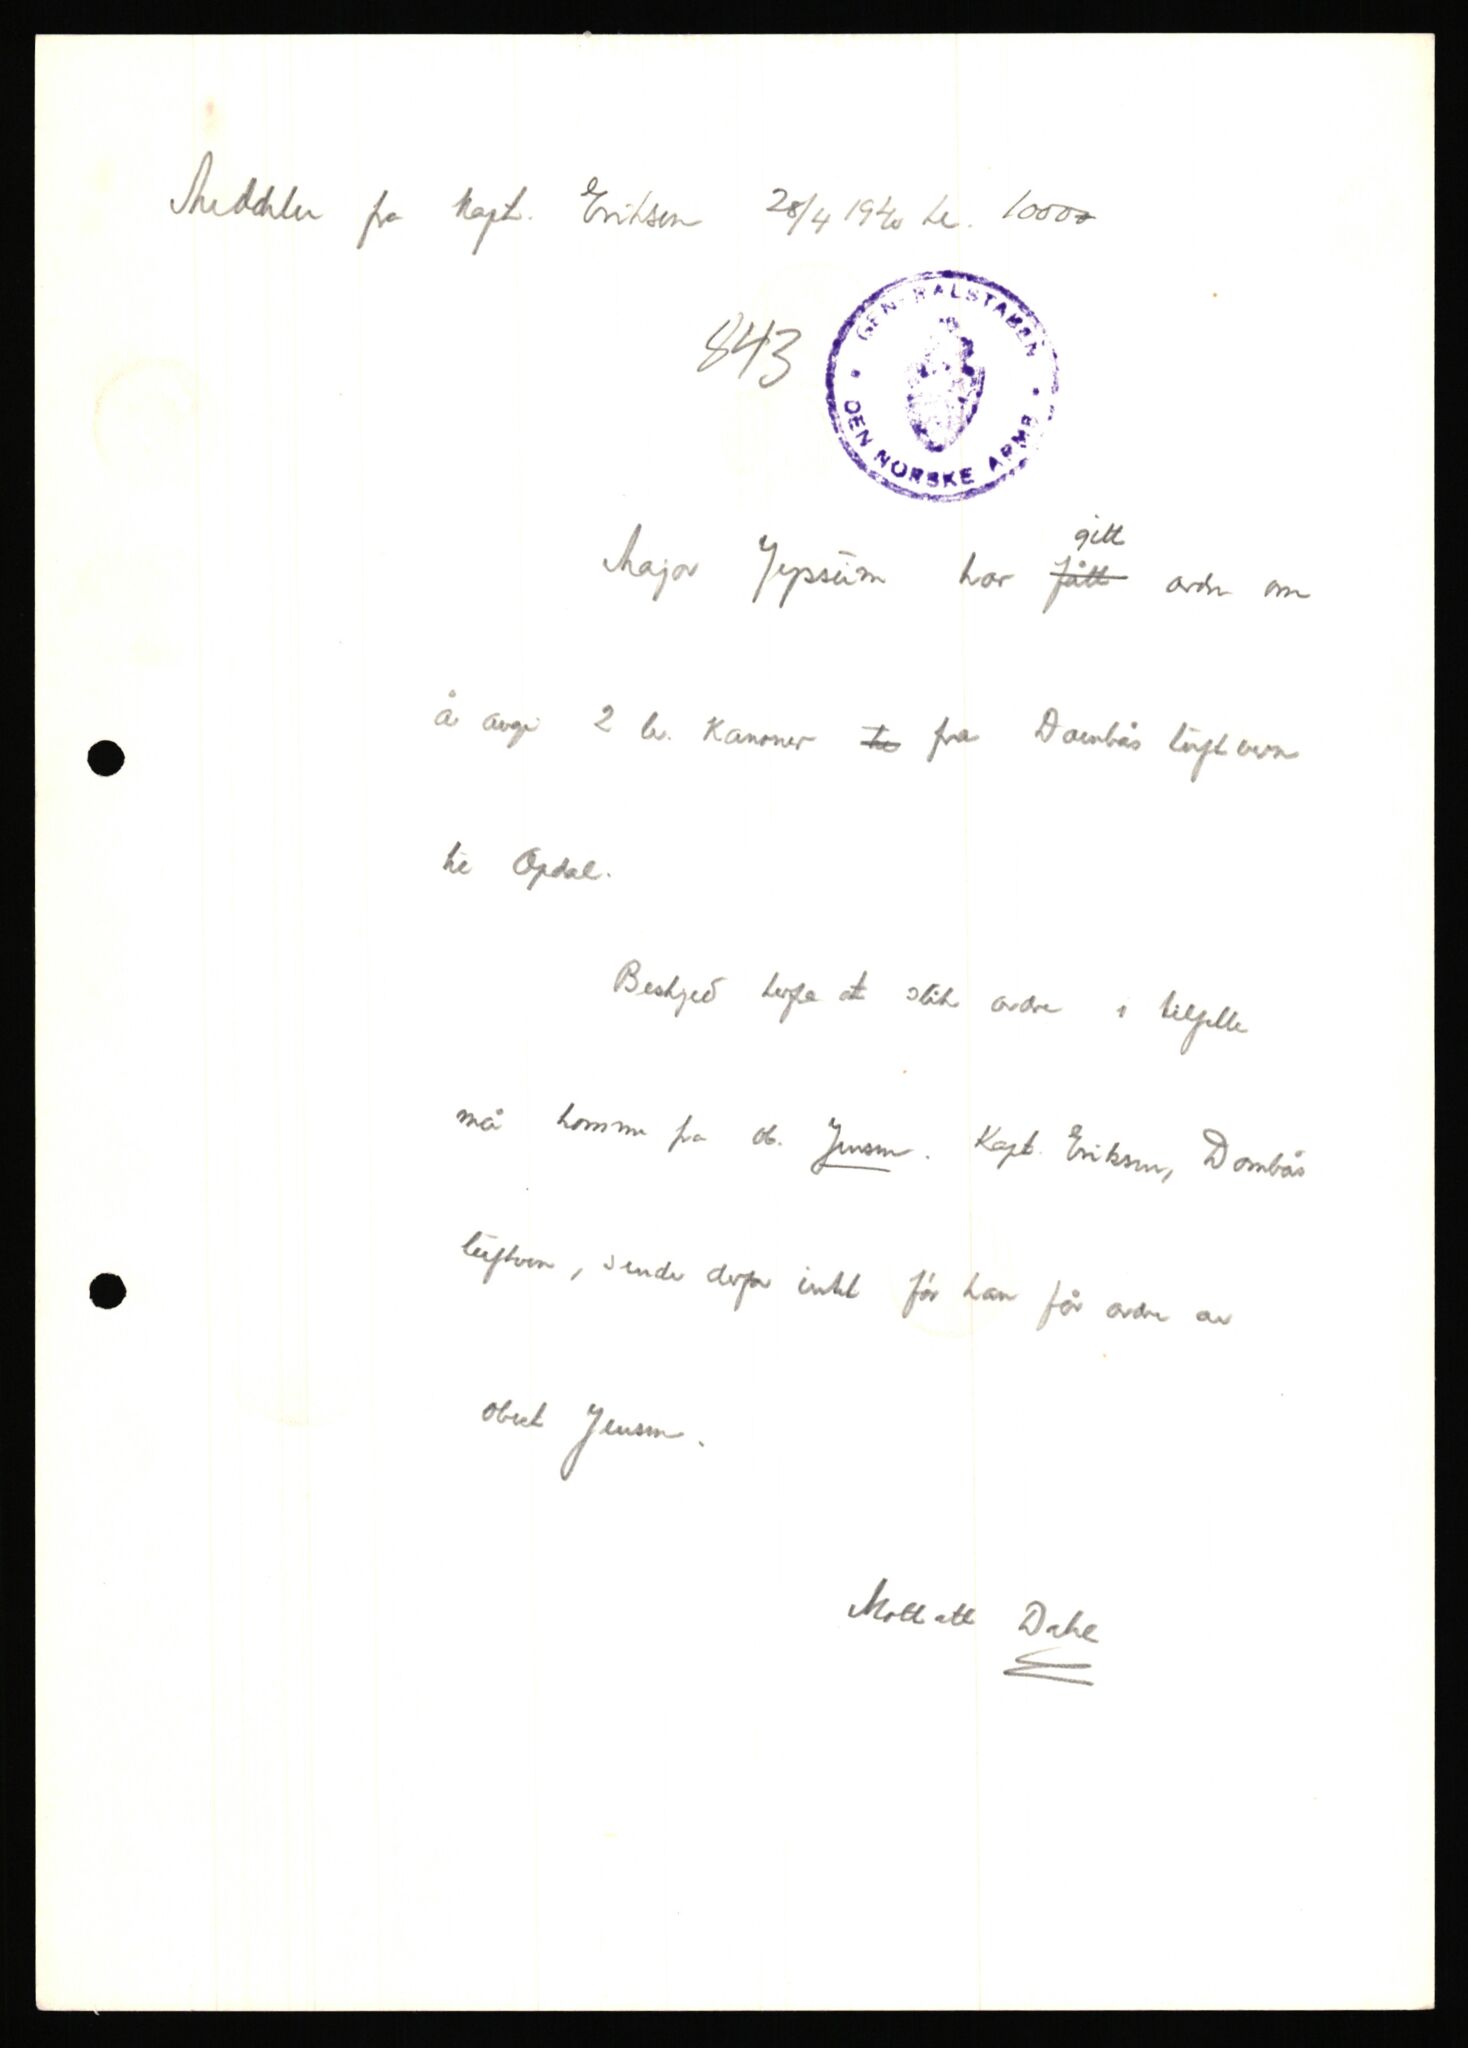 Meddelelse fra Kapt. Eriksen 28/4 1940 kl. 1000
843
GENERALSTABEN
DEN NORSKE ARME
gitt
Major Jepsen har fått ordre om
å avgi 2 lv. Kanoner fra Dombås luftvern
til Opdal.
Beskjed herfra at slik ordre i tilfelle
må komme fra ob. Jensen. Kapt. Eriksen, Dombås
luftvern, sender derfor intet før han får ordre av
oberst Jensen.
Mottatt Dahl